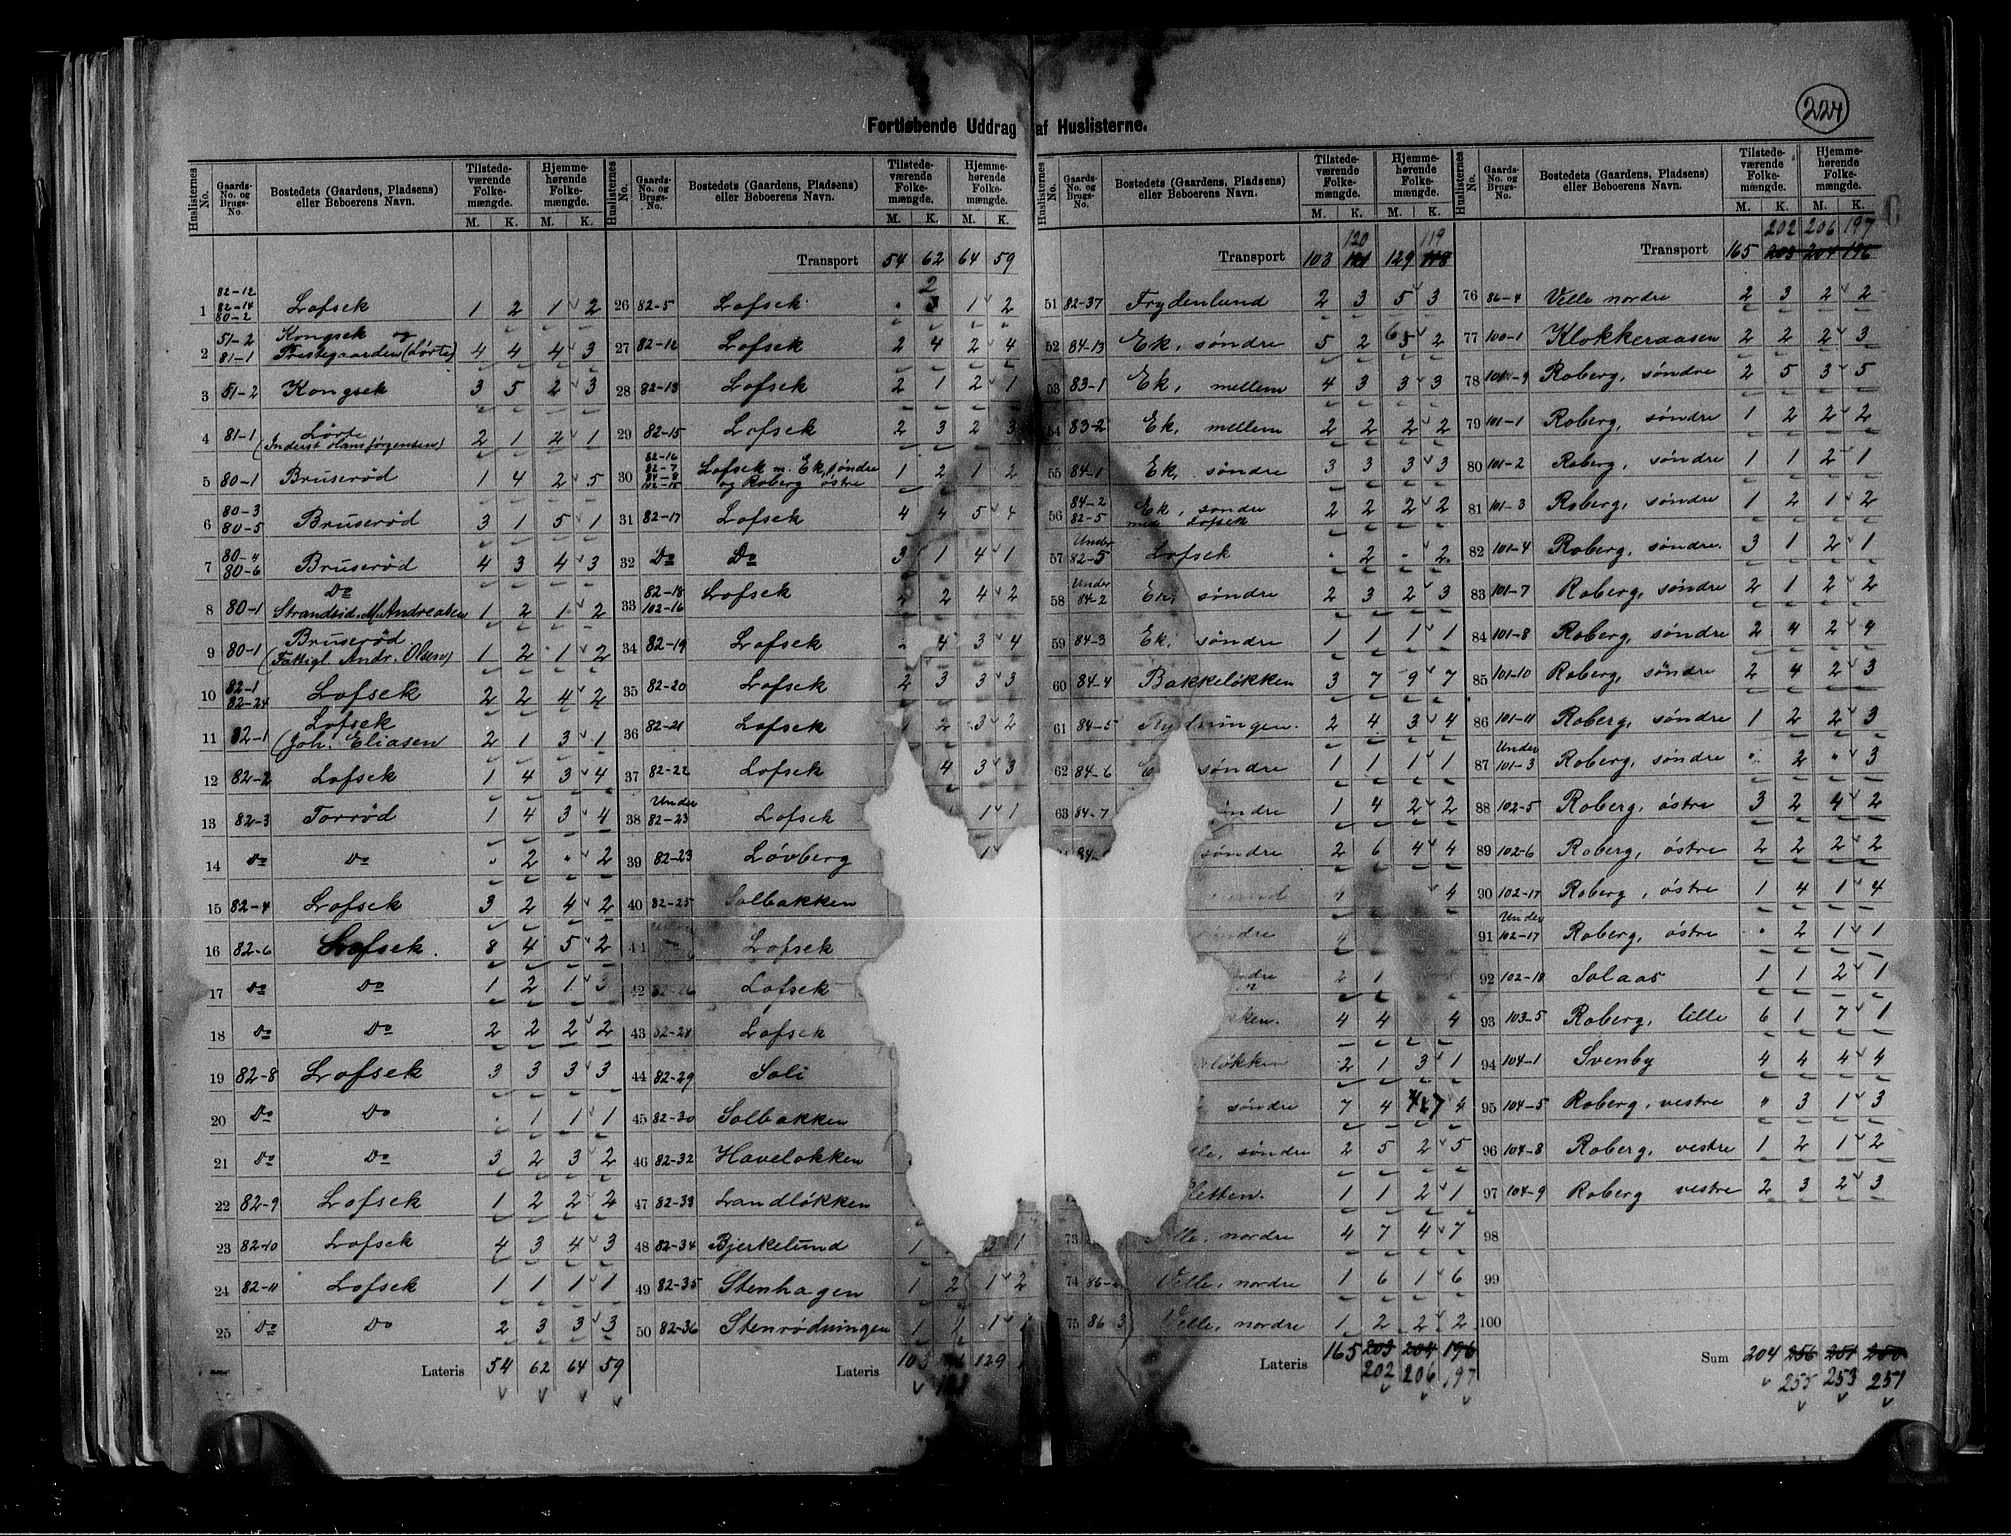 224
Fortløbende Uddrag af Huslisterne.
Huslisternes No. Gaards-No. og Brugs-No. Bostedets (Gaardens, Pladsens) eller Beboerens Navn. Tilstede-værende Folke-mængde. M. K. Hjemme-hørende Folke-mængde. M. K.
1 82-12 82-14 80-2 Lofsek 1 2 1 2
2 51-2 81-1 Kongsek og Prestegaarden (Lørte) 4 4 4 3
3 51-2 Kongsek 3 5 2 3
4 81-1 Lørte (Inderst Hans Jørgensen) 2 1 2 1
5 80-1 Bruserød 1 4 2 5
6 80-3 80-5 Bruserød 3 1 5 1
7 80-4 80-6 Bruserød 4 3 4 3
8 80-1 Do Strandsid. M. Andreasen 1 2 1 2
9 80-1 Bruserød (Fattigl Andr. Olsen) 1 2 1 2
10 82-1 82-24 Lofsek 2 2 4 2
11 82-1 Lofsek (Joh. Eliasen 2 1 3 1
12 82-2 Lofsek 1 4 3 4
13 82-3 Torrød 1 4 3 4
14 Do Do " 2 " 2
15 82-4 Lofsek 3 2 4 2
16 82-6 Lofsek. 8 4 5 2
17 Do Do 1 2 1 3
18 Do Do 2 2 2 2
19 82-8 Lofsek 3 3 3 3
20 Do Do . 1 1 1
21 Do Do 3 2 3 2
22 82-9 Lofsek 1 2 2 2
23 82-10 Lofsek 4 3 4 3
24 82-11 Lofsek 1 1 1 1
25 Do Do 2 3 3 3
Lateris 54 62 64 59
Huslisternes No. Gaards-No. og Brugs-No. Bostedets (Gaardens, Pladsens) eller Beboerens Navn. Tilstede-værende Folke-mængde. M. K. Hjemme-hørende Folke-mængde. M. K.
Transport 54 62 64 59
26 82-5 Lofsek . 2 1 2
27 82-12 Lofsek 2 4 2 4
28 82-13 Lofsek 2 1 2 1
29 82-15 Lofsek 2 3 2 3
30 82-16 82-7 84-8 102-15 Lofsek m. Ek, søndre og Roberg østre 1 2 1 2
31 82-17 Lofsek 4 4 5 4
32 Do Do 3 1 4 1
33 82-18 102-16 Lofsek 2 2 4 2
34 82-19 Lofsek . 4 3 4
35 82-20 Lofsek 2 3 3 3
36 82-21 Lofsek 1 2 3 2
37 82-22 Lofsek 4 3 3
38 Under 82-23 Lofsek 1 1
39 82-23 Løvberg 1
40 82-25 Solbakken
Lofsek
42 82-26 Lofsek
43 82-28 Lofsek
44 82-29 Soli
45 82-30 Solbakken
46 82-32 Haveløkken
47 82-33 Landløkken
48 82-34 Bjerkelund 1 3 1
49 82-35 Stenhagen 1 2 1 2
50 82-36 Stenrødningen 1 1 1
Lateris 103 129
Huslisternes No. Gaards-No. og Brugs-No. Bostedets (Gaardens, Pladsens) eller Beboerens Navn. Tilstede-værende Folke-mængde. M. K. Hjemme-hørende Folke-mængde. M. K.
120 119
Transport 103 121 129 118
51 82-37 Frydenlund 2 3 5 3
52 84-13 Ek, søndre 5 2 6 5 2
53 83-1 Ek, mellem 4 3 3 3
54 83-2 Ek, mellem 2 2 2 2
55 84-1 Ek, søndre 3 3 3 3
56 84-2 82-5 Ek, søndre med Lofsek 2 2 2 2
57 Under 82-5 Lofsek . 2 . 2
58 Under 84-2 Ek, søndre 2 3 2 3
59 84-3 Ek, søndre 1 1 1 1
60 84-4 Bakkeløkken 3 7 9 7
61 84-5 Rydningen. 2 4 3 4
62 84-6 E søndre 1 1 1 1
63 84-7 øndre 1 4 2 2
84- søndre 2 6 4 4
4 4
ndre 2 1
kken. 4 4 4
løkken 2 1 3 1
søndre 7 4 7 4
lle, søndre 2 5 2 5
letten. 1 1 2 1
73 lle, nordre 4 7 4 7
74 86- Velle, nordre 1 6 1 6
75 86 3 Velle, nordre 1 2 2 2
Lateris 165 203 204 196
202 206 197
Huslisternes No. Gaards-No. og Brugs-No. Bostedets (Gaardens, Pladsens) eller Beboerens Navn. Tilstede-værende Folke-mængde. M. K. Hjemme-hørende Folke-mængde. M. K.
202 206 197
Transport 165 203 204 196
76 86-4 Velle nordre 2 3 2 2
77 100-1 Klokkeraasen 2 2 2 3
78 101-9 Roberg, søndre 2 5 3 5
79 101-1 Roberg, søndre 1 2 2 2
80 101-2 Roberg, søndre 1 1 2 1
81 101-3 Roberg, søndre 1 2 1 2
82 101-4 Roberg, søndre. 3 1 2 1
83 101-7 Roberg, søndre 2 1 2 2
84 101-8 Roberg, søndre 2 4 2 4
85 101-10 Roberg, søndre 2 4 2 3
86 101-11 Roberg, søndre 1 2 2 3
87 Under 101-3 Roberg, søndre " 2 " 3
88 102-5 Roberg, østre 3 2 4 2
89 102-6 Roberg, østre 2 2 2 2
90 102-17 Roberg, østre 1 4 1 4
91 Under 102-17 Roberg, østre " 2 1 1
92 102-18 Solaas 1 1 2 1
93 103-5 Roberg, lille 6 1 7 1
94 104-1 Svenby 4 4 4 4
95 104-5 Roberg, vestre " 3 1 3
96 104-8 Roberg, vestre 1 2 1 2
97 104-9 Roberg vestre 2 3 2 3
98
99
100
Sum 204 256 251 250
255 253 251